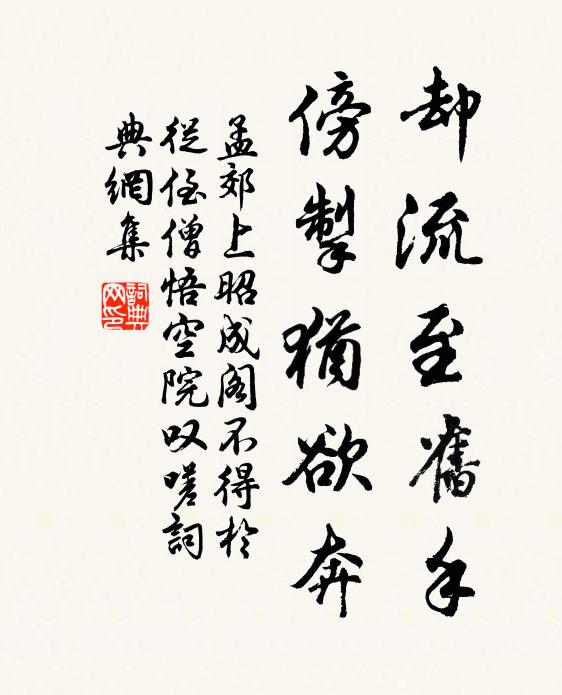 却流至舊手
傍掣猶欲奔
孟郊上昭成閣不得於
從侄僧悟空院叹嗟詞
典網集
詞典網印